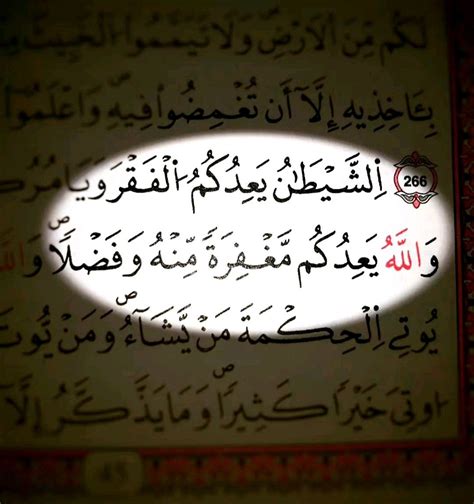 لَكُم مِّنَ اَ۬لَارْضِۖ وَلَا تَيَمَّمُواْ اُ۬لْخَبِيثَ
بِـَٔاخِذِيهِ إِلَّآ أَن تُغْمِضُواْ فِيهِۖ وَاعْلَمُوٓاْ
266 اِ۬لشَّيْطَٰنُ يَعِدُكُمُ اُ۬لْفَقْرَ وَيَامُرُك
وَاللَّهُ يَعِدُكُم مَّغْفِرَةٗ مِّنْهُ وَفَضْلاٗۖ وَاللَّ
يُوتِے اِ۬لْحِكْمَةَ مَنْ يَّشَآءُۖ وَمَنْ يُّوتَ
اُوتِيَ خَيْراٗ كَثِيراٗۖ وَمَا يَذَّكَّرُ إِلَّآ
45